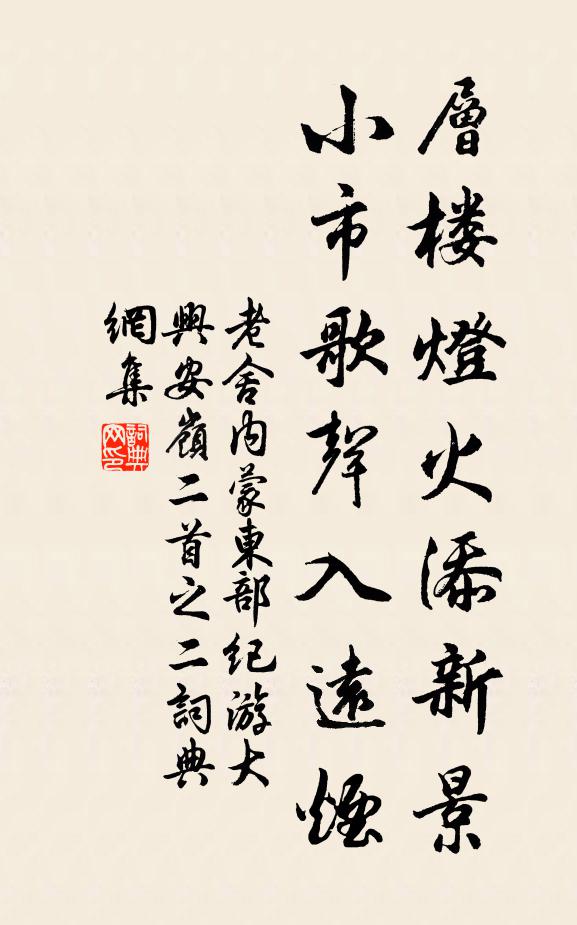 層楼燈火添新景
小市歌聲入遠煙
老舍内蒙東部纪游大
興安嶺二首之二詞典
網集
詞典
网印